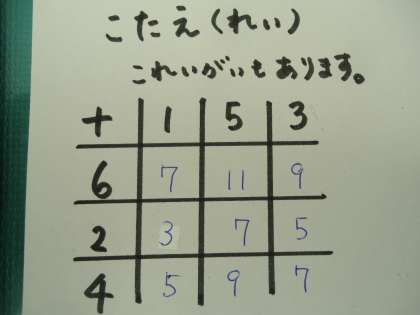 こたえ(れい)
これいがいもあります。
+ 1 5 3
6 7 11 9
2 3 7 5
4 5 9 7